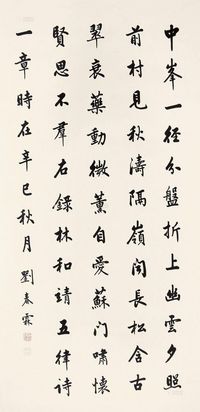 中峯一徑分盤折上幽雲夕照
前村見秋濤隔嶺聞長松含古
翠衰藥動微薰自愛蘇门嘯懷
賢思不羣右錄林和靖五律詩
一章時在辛巳秋月 劉春霖